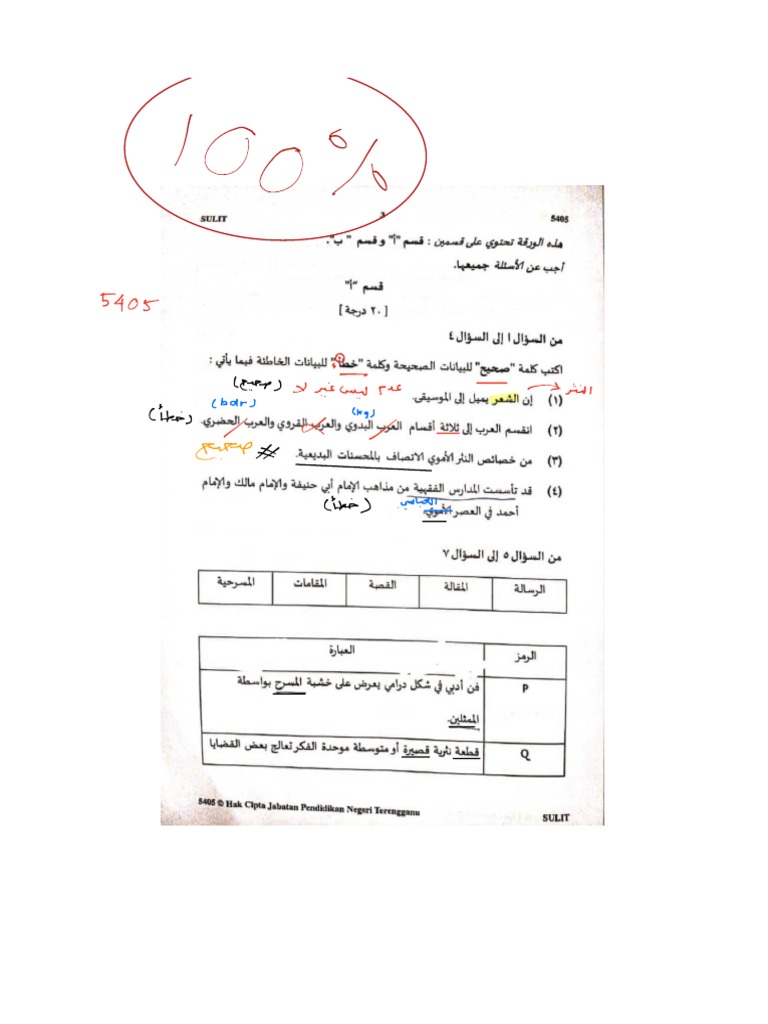 100%
SULIT 3 5405
هذه الورقة تحتوي على قسمين : قسم "أ" و قسم " ب".
أجب عن الأسئلة جميعها.
قسم "أ"
[٢٠ درجة]
5405
من السؤال ١ إلى السؤال ٤
اكتب كلمة "صحيح" للبيانات الصحيحة وكلمة "خطأ" للبيانات الخاطئة فيما يأتي :
النثر
عدم ليس غير لا (صحيح)
(١) إن الشعر يميل إلى الموسيقى.
(bdr) (kg)
(٢) انقسم العرب إلى ثلاثة أقسام العرب البدوي والعرب القروي والعرب الحضري. (خطأ)
(٣) من خصائص النثر الأموي الاتصاف بالمحسنات البديعية. # صحيح
(٤) قد تأسست المدارس الفقهية من مذاهب الإمام أبي حنيفة والإمام مالك والإمام
العباسي
أحمد في العصر الأموي. (خطأ)
من السؤال ٥ إلى السؤال ٧
الرسالة المقالة القصة المقامات المسرحية
الرمز العبارة
P فن أدبي في شكل درامي يعرض على خشبة المسرح بواسطة
الممثلين.
Q قطعة نثرية قصيرة أو متوسطة موحدة الفكر تعالج بعض القضايا
5405 © Hak Cipta Jabatan Pendidikan Negeri Terengganu
SULIT